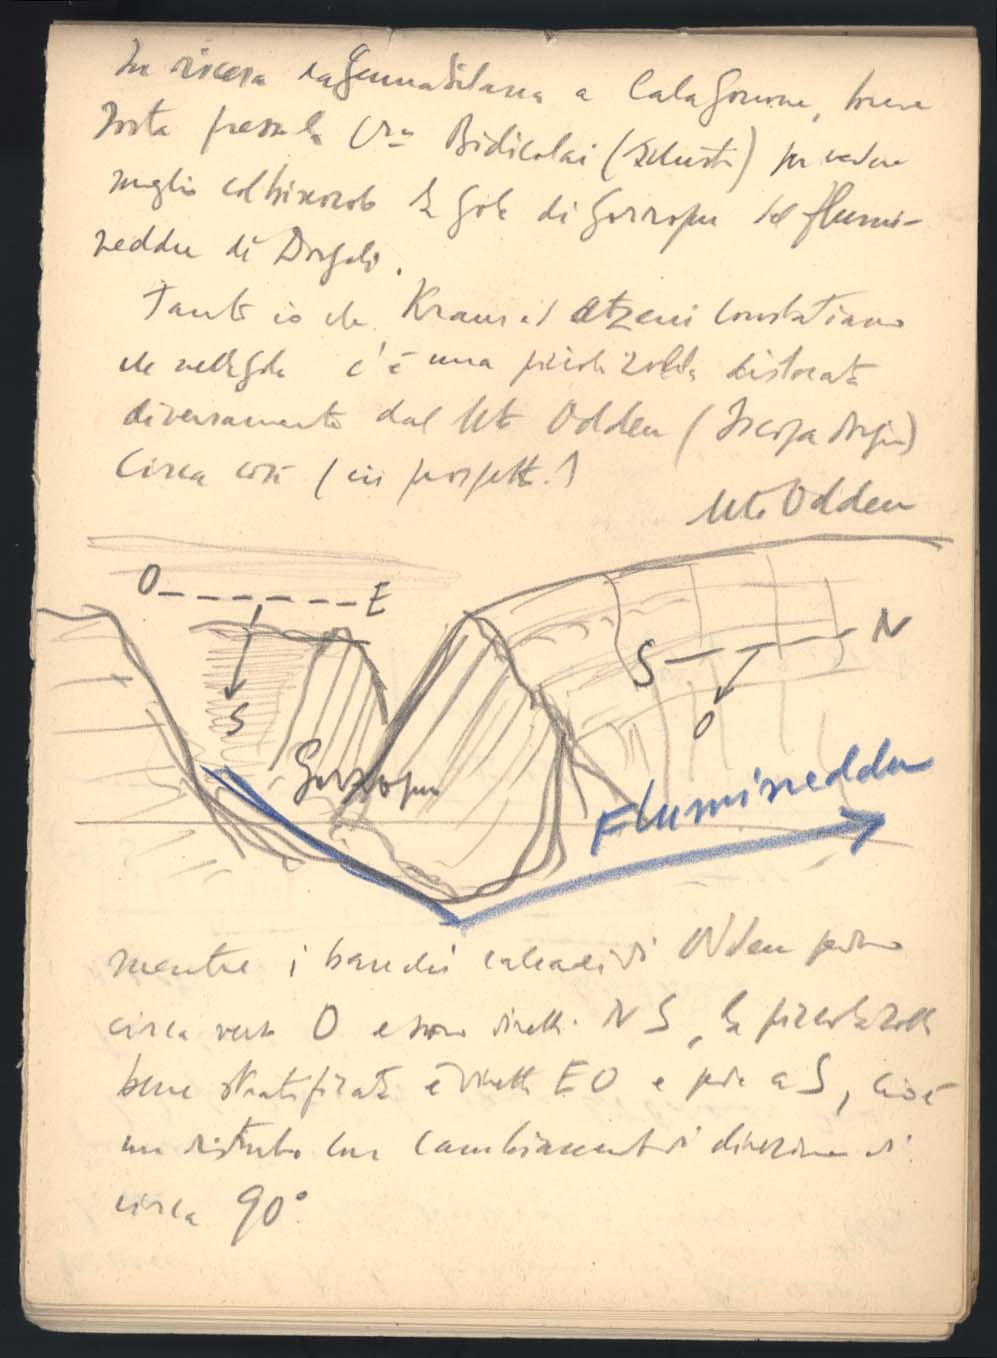 In discesa da Genna Silana a Cala Gonone, breve
sosta presso la Cra Bidicolai (Scisti) per vedere
meglio col binocolo la Gola di Gorropu del Flumi-
neddu di Dorgali.
Tanto io che Kraus ed Atzeni constatiamo
che nella gola c'è una piccola zolla dislocata
diversamente dal Mte Oddeu
Circa così (in prospett.)
Mte Oddeu
O E
S
S N
O
Gorropu
Flumineddu
mentre i banchi calcarei di Oddeu pendono
circa verso O e sono diretti NS, la piccola zolla
bene stratificata è diretta EO e pende a S, cioè
un disturbo con cambiamento di direzione di
circa 90°